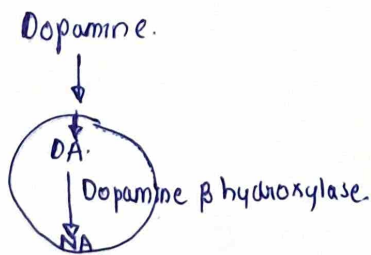 Dopamine.
DA.
Dopamine β hydroxylase.
NA